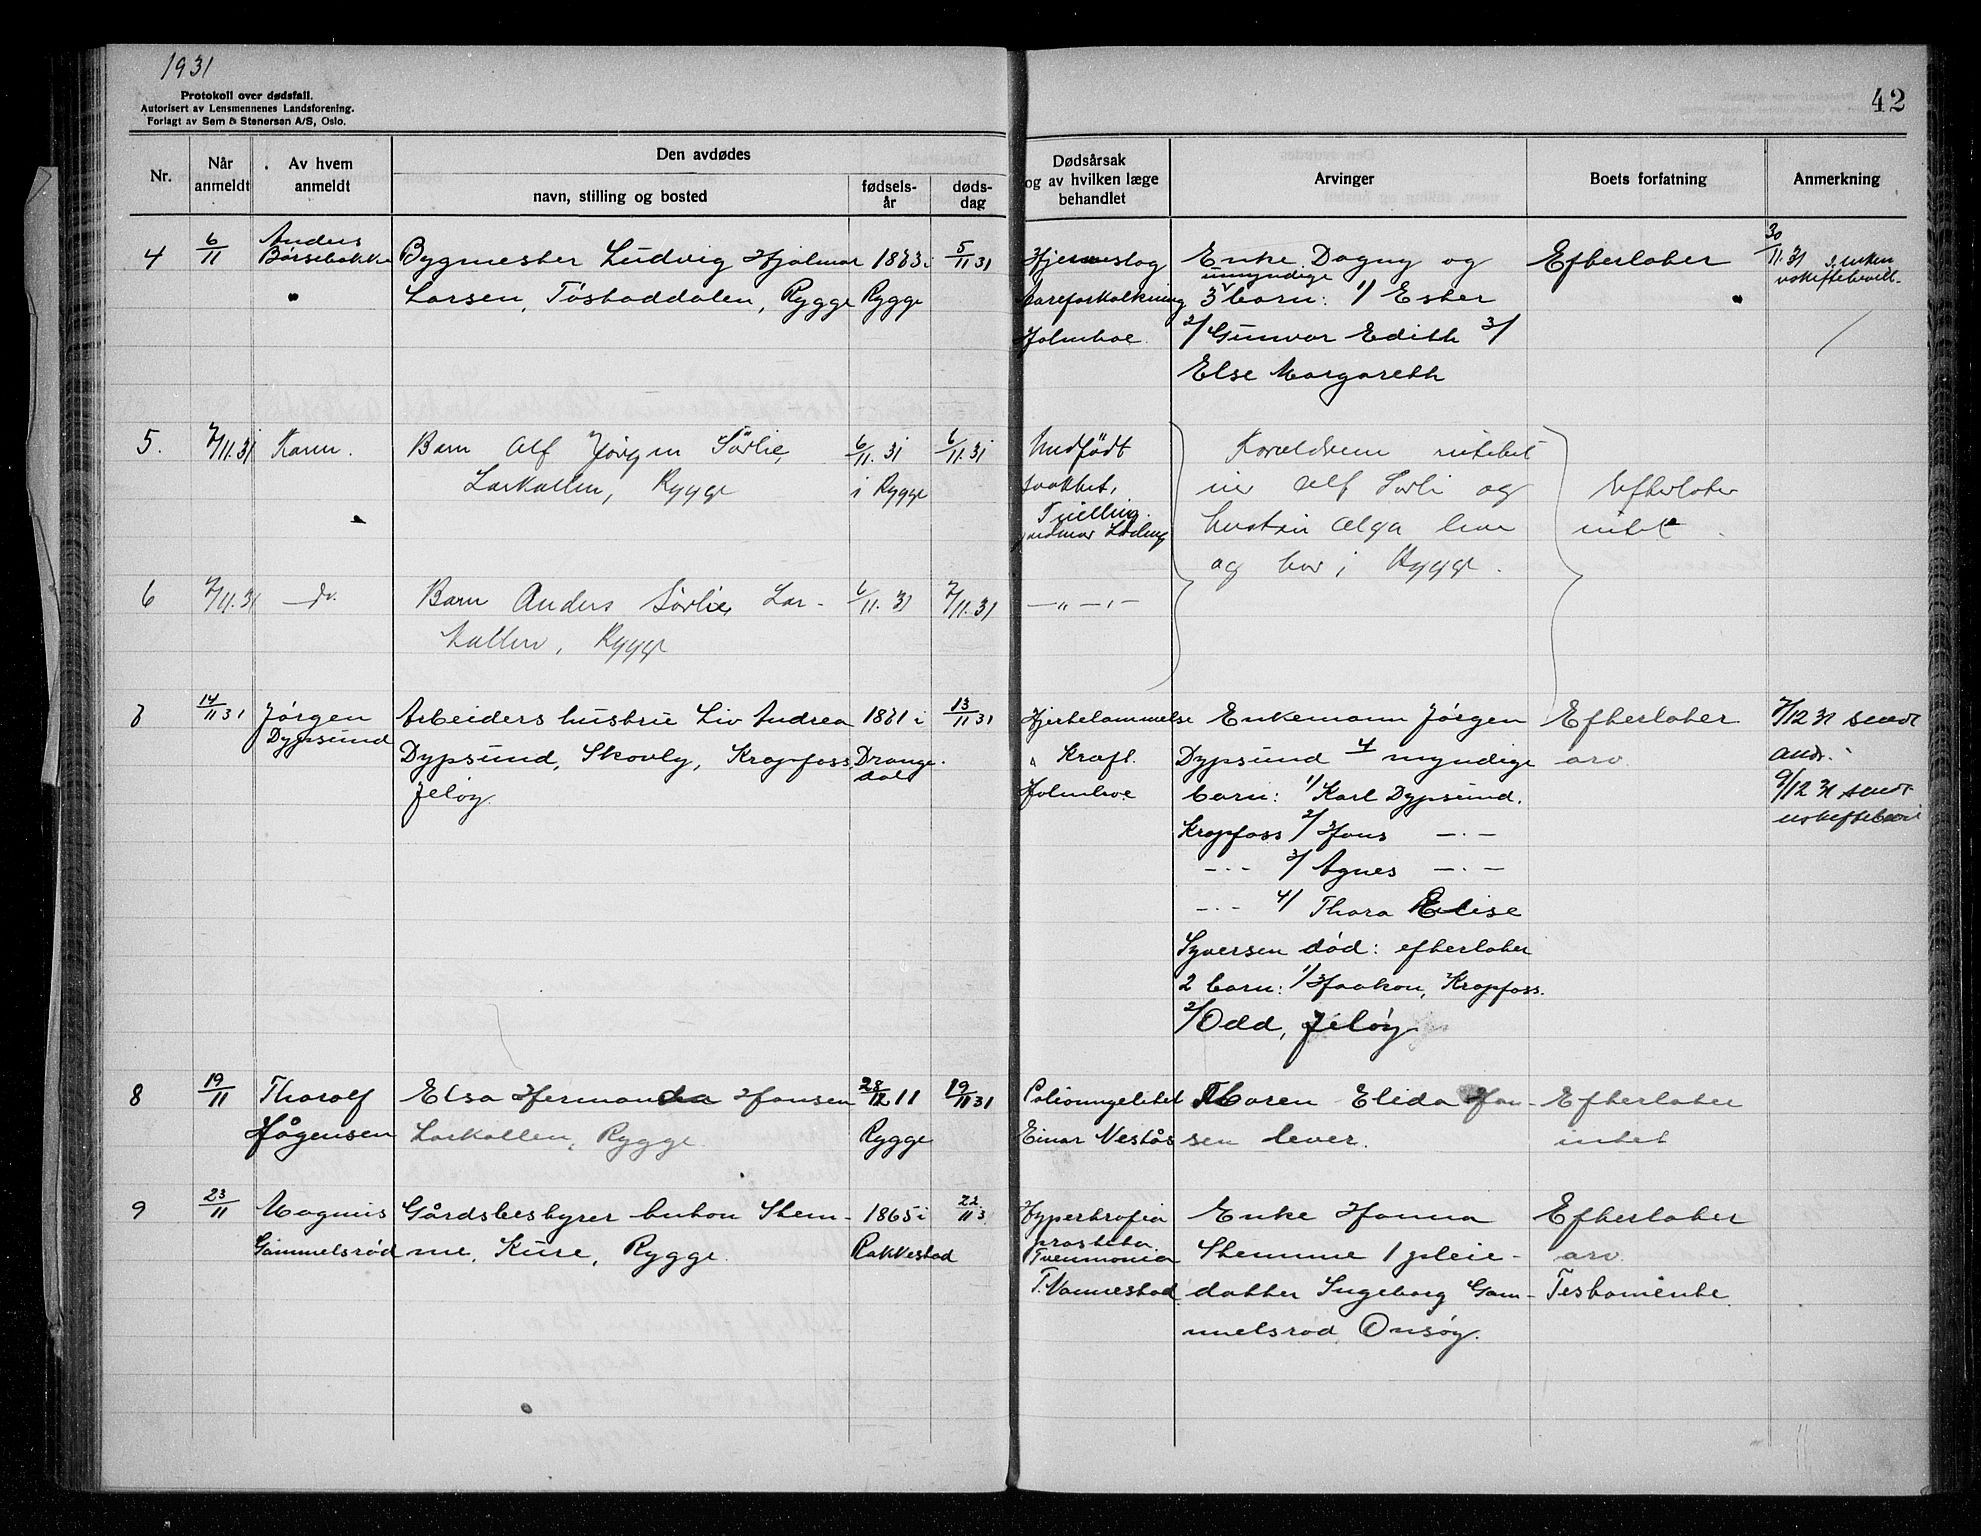 1931
Protokoll over dødsfall.
Autorisert av Lensmennenes Landsforening.
Forlagt av Sem & Stenersen A/S, Oslo.
42
Nr.
Når anmeldt
Av hvem anmeldt
Den avdødes
navn, stilling og bosted
fødselsår
dødsdag
Dødsårsak og av hvilken læge behandlet
Arvinger
Boets forfatning
Anmerkning
4
6/11
Anders
Børsebakke
Bygmester Ludvig Hjalmar
Larsen, Tøstaddalen, Rygge
1883 i
Rygge
5/11 31
Hjerneslag
Aareforkalkning
Holmboe.
Enke Dagny og
umyndige
3 barn: 1/ Ester
2/ Gunvor Edith 3/
Else Margareth
Efterlater
30/11.31 s. enken
uskiftebevill.
5.
7/11.31
Karen.
Barn Alf Jörgen Sörlie,
Larkollen, Rygge
6/11. 31
i Rygge
6/11.31
Tvilling.
Forældrene
Alf Sørli og
hustru Olga lever
og bor i Rygge.
Efterlater
intet
6
7/11.31
— do.
Barn Anders Sørlie, Lar-
kollen, Rygge
6/11. 31
7/11.31
— " — " —
7
14/11 31
Jørgen
Dypsund
Arbeiders hustru Liv Andrea
Dypsund, Skovly, Krapfoss,
Jeløy.
1861 i
Drange-
dal
13/11 31
Hjertelammelse
Kraft.
Holmboe
Enkemann Jørgen
Dypsund 4 myndige
barn: 1/ Karl Dypsund.
Krapfoss 2/ Hans — · —
— · — 3/ Agnes — · —
— · — 4/ Thora Elise
Syversen død: efterlater
2 barn: 1/ Haakon, Krapfoss.
2/ Odd, Jeløy
Efterlater
arv.
7/12 31 sendt
9/12 31 sendt
uskiftebevil
8
19/11
Tharalf
Hågensen
Elsa Hermanda Hansen
Larkollen, Rygge.
28/12 11
Rygge
19/11 31
Poliomyelitet
Einar Nestås
Moren Elida Han-
sen lever.
Efterlater
intet
9
23/11
Magnus
Gammelsrød
Gårdsbestyrer Anton Stem-
me, Kure, Rygge.
1865 i
Rakkestad
22/11 3
Hypertrofia
prostata.
Pneumonia
T. Vannestad
Enke Hanna
Stemme 1 pleie-
datter Ingeborg Gam-
melsrød, Onsøy.
Efterlater
arv.
Testamente